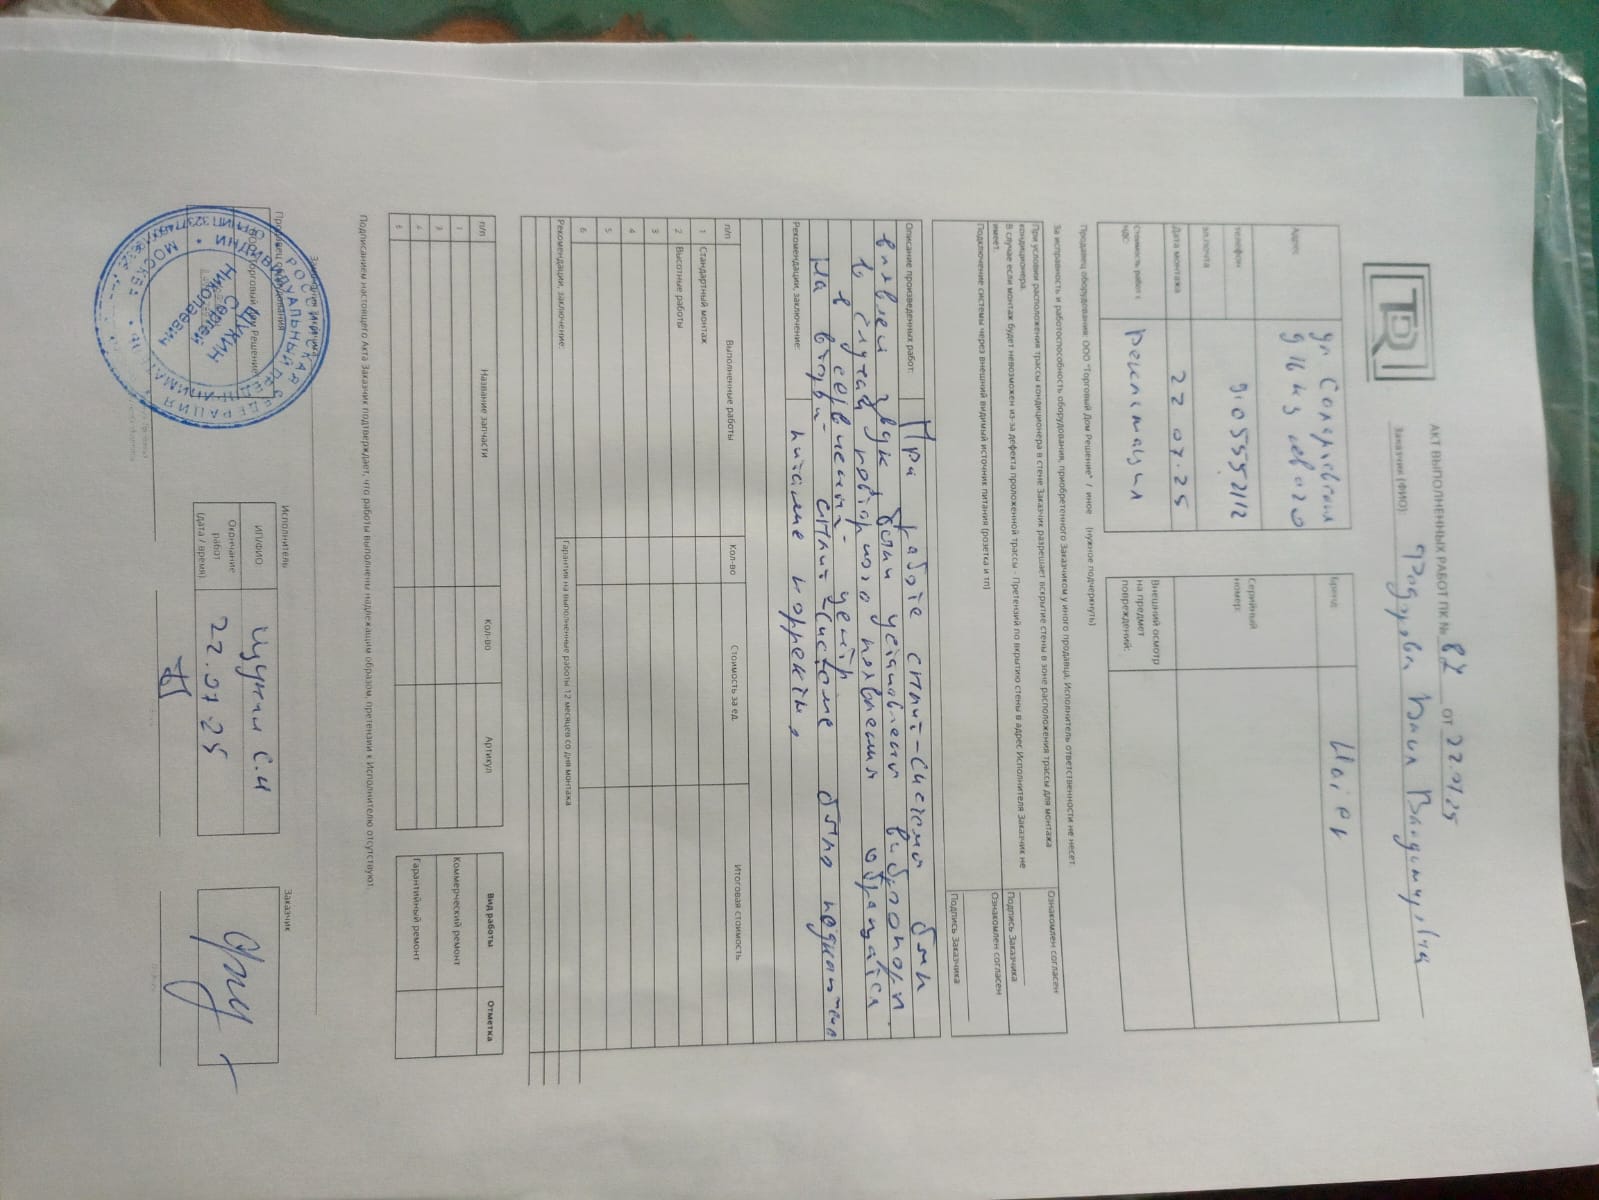 TDR
АКТ ВЫПОЛНЕННЫХ РАБОТ ПК № 87 от 22.07.25
Заказчик (ФИО):
Адрес
телефон 9105552112
эл.почта
Дата монтажа 22 07.25
Стоимость работ с НДС: рекламация
Бренд: Haier
Серийный номер:
Внешний осмотр на предмет повреждений:
Продавец оборудования: ООО "Торговый Дом Решение" / иное (нужное подчеркнуть)
За исправность и работоспособность оборудования, приобретенного Заказчиком у иного продавца, Исполнитель ответственности не несет.
При условии расположения трассы кондиционера в стене Заказчик разрешает вскрытие стены в зоне расположения трассы для монтажа
кондиционера.
В случае если монтаж будет невозможен из-за дефекта проложенной трассы - Претензий по вскрытию стены в адрес Исполнителя Заказчик не
имеет.
Ознакомлен согласен
Подпись Заказчика
Подключение системы через внешний видимый источник питания (розетка и тп)
Ознакомлен согласен
Подпись Заказчика
Описание произведенных работ: При работе сплит-системы был
выявлен звук были установлены виброопоры.
В случай повторного появления обращатся
в сервисный центр
На второй сплит-системе было подключено
Рекомендации, заключение: питание корректн
п/п Выполненные работы Кол-во Стоимость за ед. Итоговая стоимость
1 Стандартный монтаж
2 Высотные работы
3
4
5
6
Рекомендации, заключение: Гарантия на выполненные работы 12 месяцев со дня монтажа
п/п Название запчасти Кол-во Артикул
1
3
4
6
Вид работы Отметка
Коммерческий ремонт
Гарантийный ремонт
Подписанием настоящего Акта Заказчик подтверждает, что работы выполнены надлежащим образом, претензии к Исполнителю отсутствуют.
Исполнитель
ИП/ФИО: С.Н
Окончание работ (дата / время) 22.07.25
Заказчик
РОССИЙСКАЯ ФЕДЕРАЦИЯ
ИНДИВИДУАЛЬНЫЙ ПРЕДПРИНИМАТЕЛЬ
Сергей
Николаевич
МОСКВА